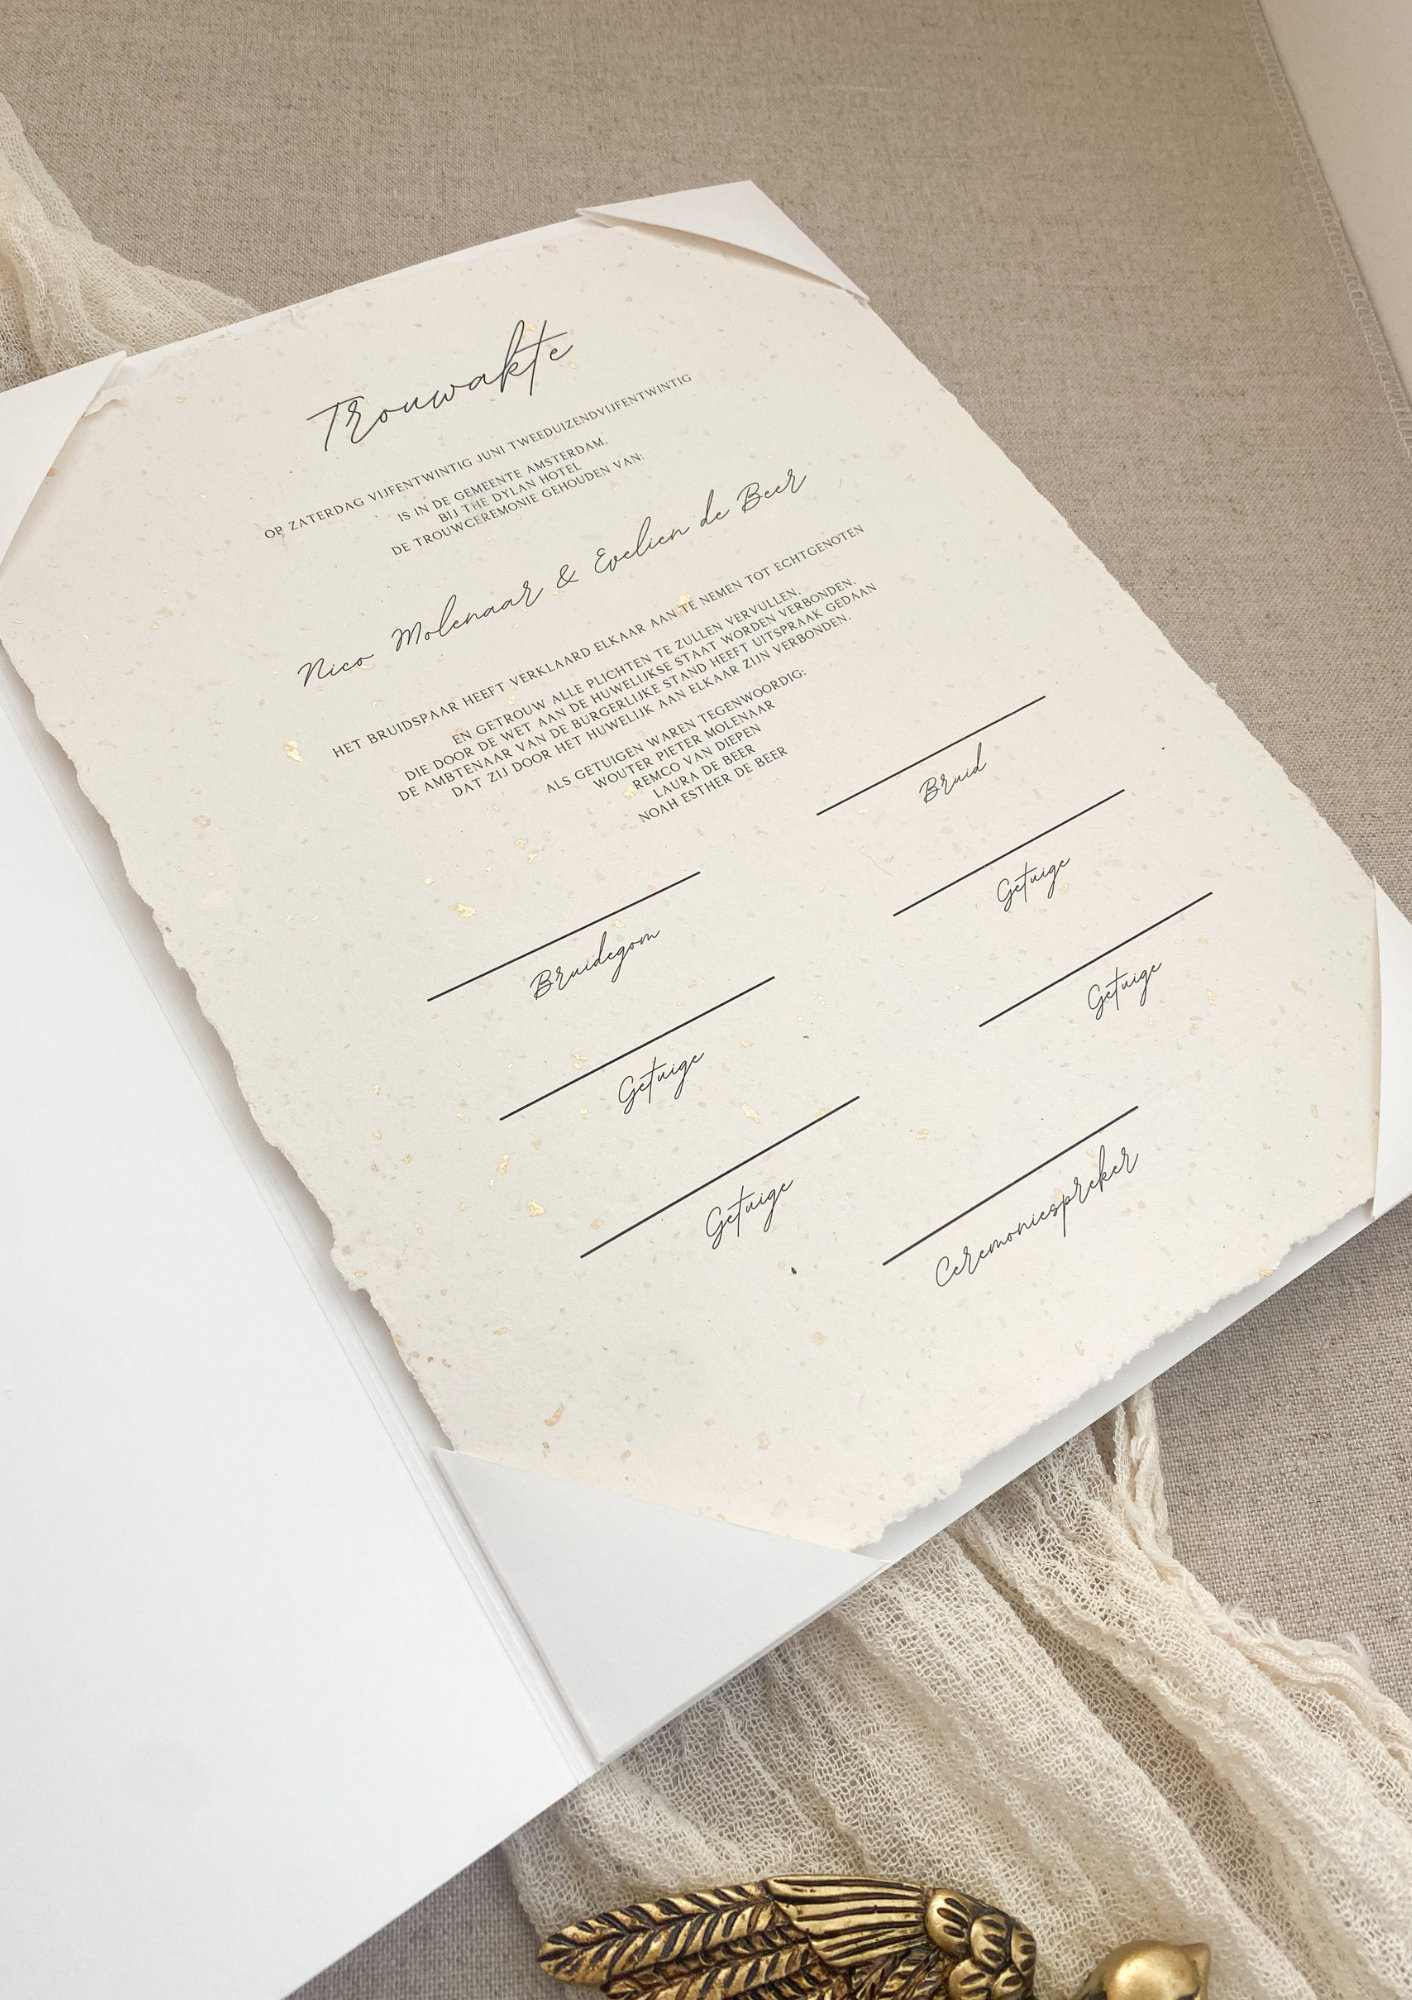 Trouwakte
OP ZATERDAG VIJFENTWINTIG JUNI TWEEDUIZENDVIJFENTWINTIG
IS IN DE GEMEENTE AMSTERDAM.
BIJ THE DYLAN HOTEL
DE TROUWCEREMONIE GEHOUDEN VAN:
Nico Molenaar & Evelien de Beer
HET BRUIDSPAAR HEEFT VERKLAARD ELKAAR AAN TE NEMEN TOT ECHTGENOTEN
EN GETROUW ALLE PLICHTEN TE ZULLEN VERVULLEN,
DIE DOOR DE WET AAN DE HUWELIJKSE STAAT WORDEN VERBONDEN.
DE AMBTENAAR VAN DE BURGERLIJKE STAND HEEFT UITSPRAAK GEDAAN
DAT ZIJ DOOR HET HUWELIJK AAN ELKAAR ZIJN VERBONDEN.
ALS GETUIGEN WAREN TEGENWOORDIG:
WOUTER PIETER MOLENAAR
REMCO VAN DIEPEN
LAURA DE BEER
NOAH ESTHER DE BEER
Bruidegom
Bruid
Getuige
Getuige
Getuige
Getuige
Ceremoniespreker